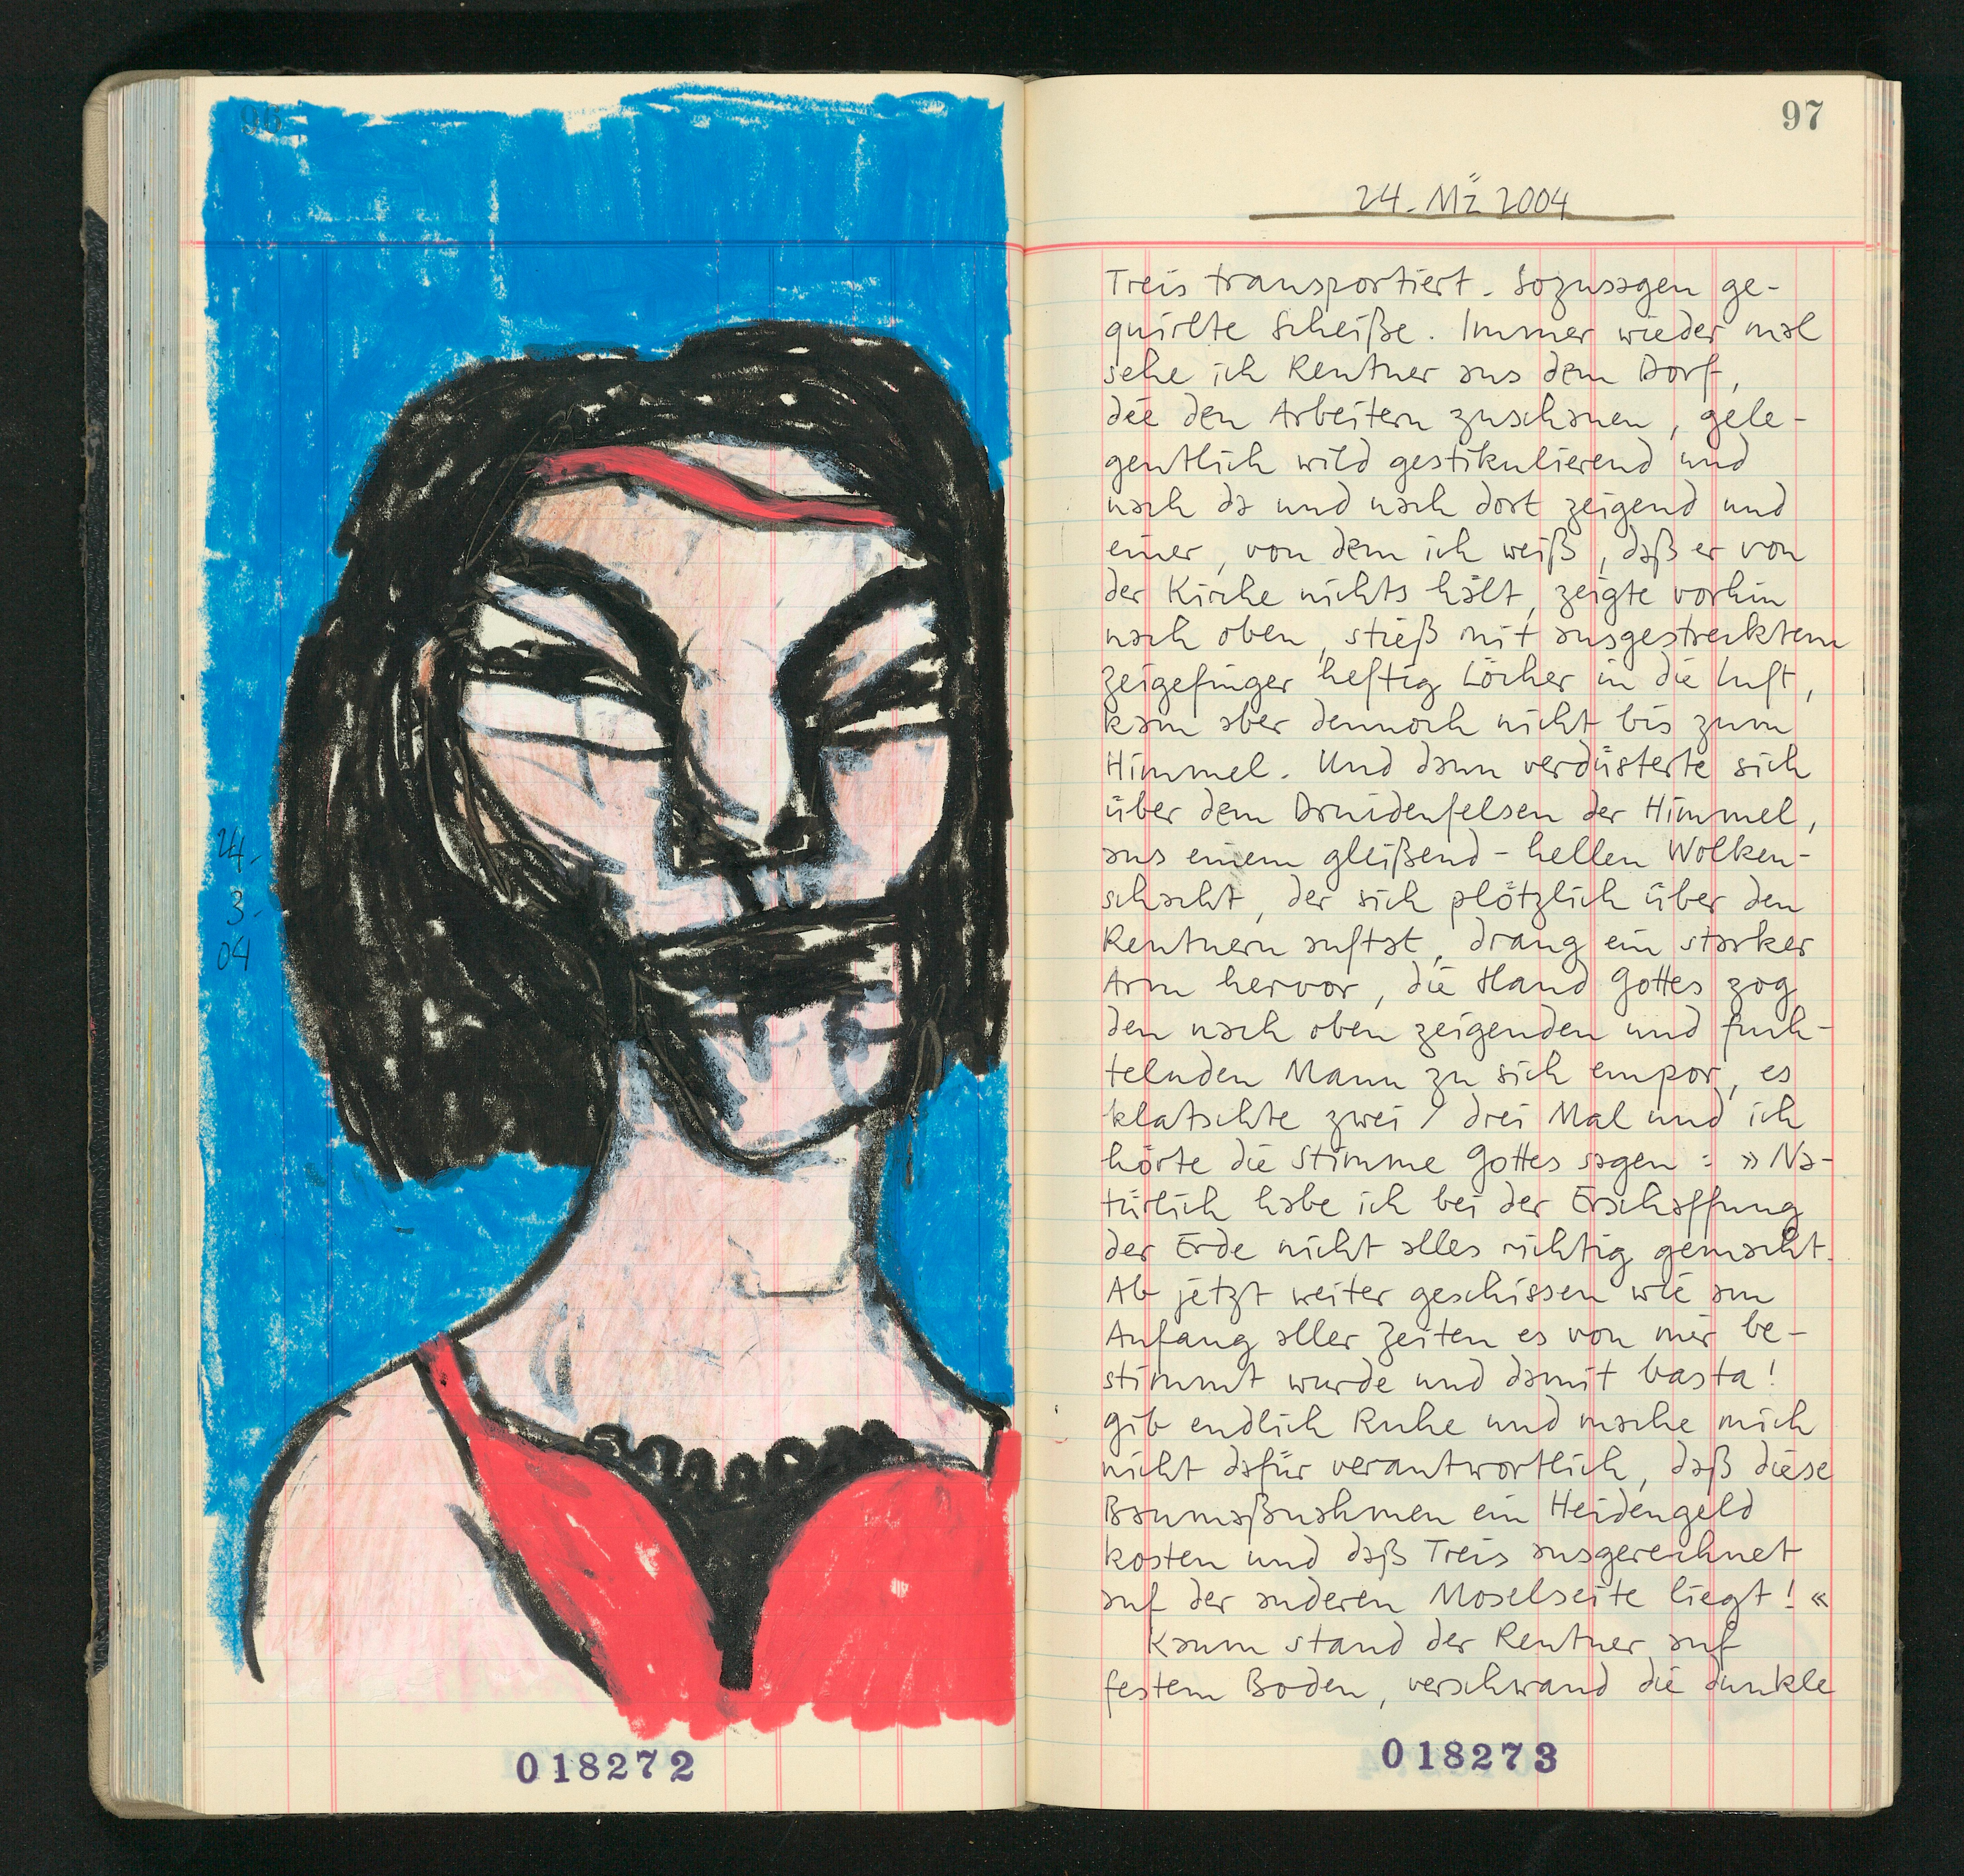 96
24.
3.
04
018272
97
24. Mz 2004
Treis transportiert. Sozusagen ge-
quirlte Scheiße. Immer wieder mal
sehe ich Rentner aus dem Dorf,
die den Arbeitern zuschauen, gele-
gentlich wild gestikulierend und
nach da und nach dort zeigend und
einer, von dem ich weiß, daß er von
der Kirche nichts hält, zeigte vorhin
nach oben, stieß mit ausgestrecktem
Zeigefinger heftig Löcher in die Luft,
kam aber dennoch nicht bis zum
Himmel. Und dann verdüsterte sich
über dem Druidenfelsen der Himmel,
aus einem gleißend-hellen Wolken-
schacht, der sich plötzlich über den
Rentnern auftat, drang ein starker
Arm hervor, die Hand Gottes zog
den nach oben zeigenden und fuch-
telnden Mann zu sich empor, es
klatschte zwei / drei Mal und ich
hörte die Stimme Gottes sagen: »Na-
türlich habe ich bei der Erschaffung
der Erde nicht alles richtig gemacht.
Ab jetzt weiter geschissen wie am
Anfang aller Zeiten es von mir be-
stimmt wurde und damit basta!
Gib endlich Ruhe und mache mich
nicht dafür verantwortlich, daß diese
Baumaßnahmen ein Heidengeld
kosten und daß Treis ausgerechnet
auf der anderen Moselseite liegt!«
Kaum stand der Rentner auf
festem Boden, verschwand die dunkle
018273